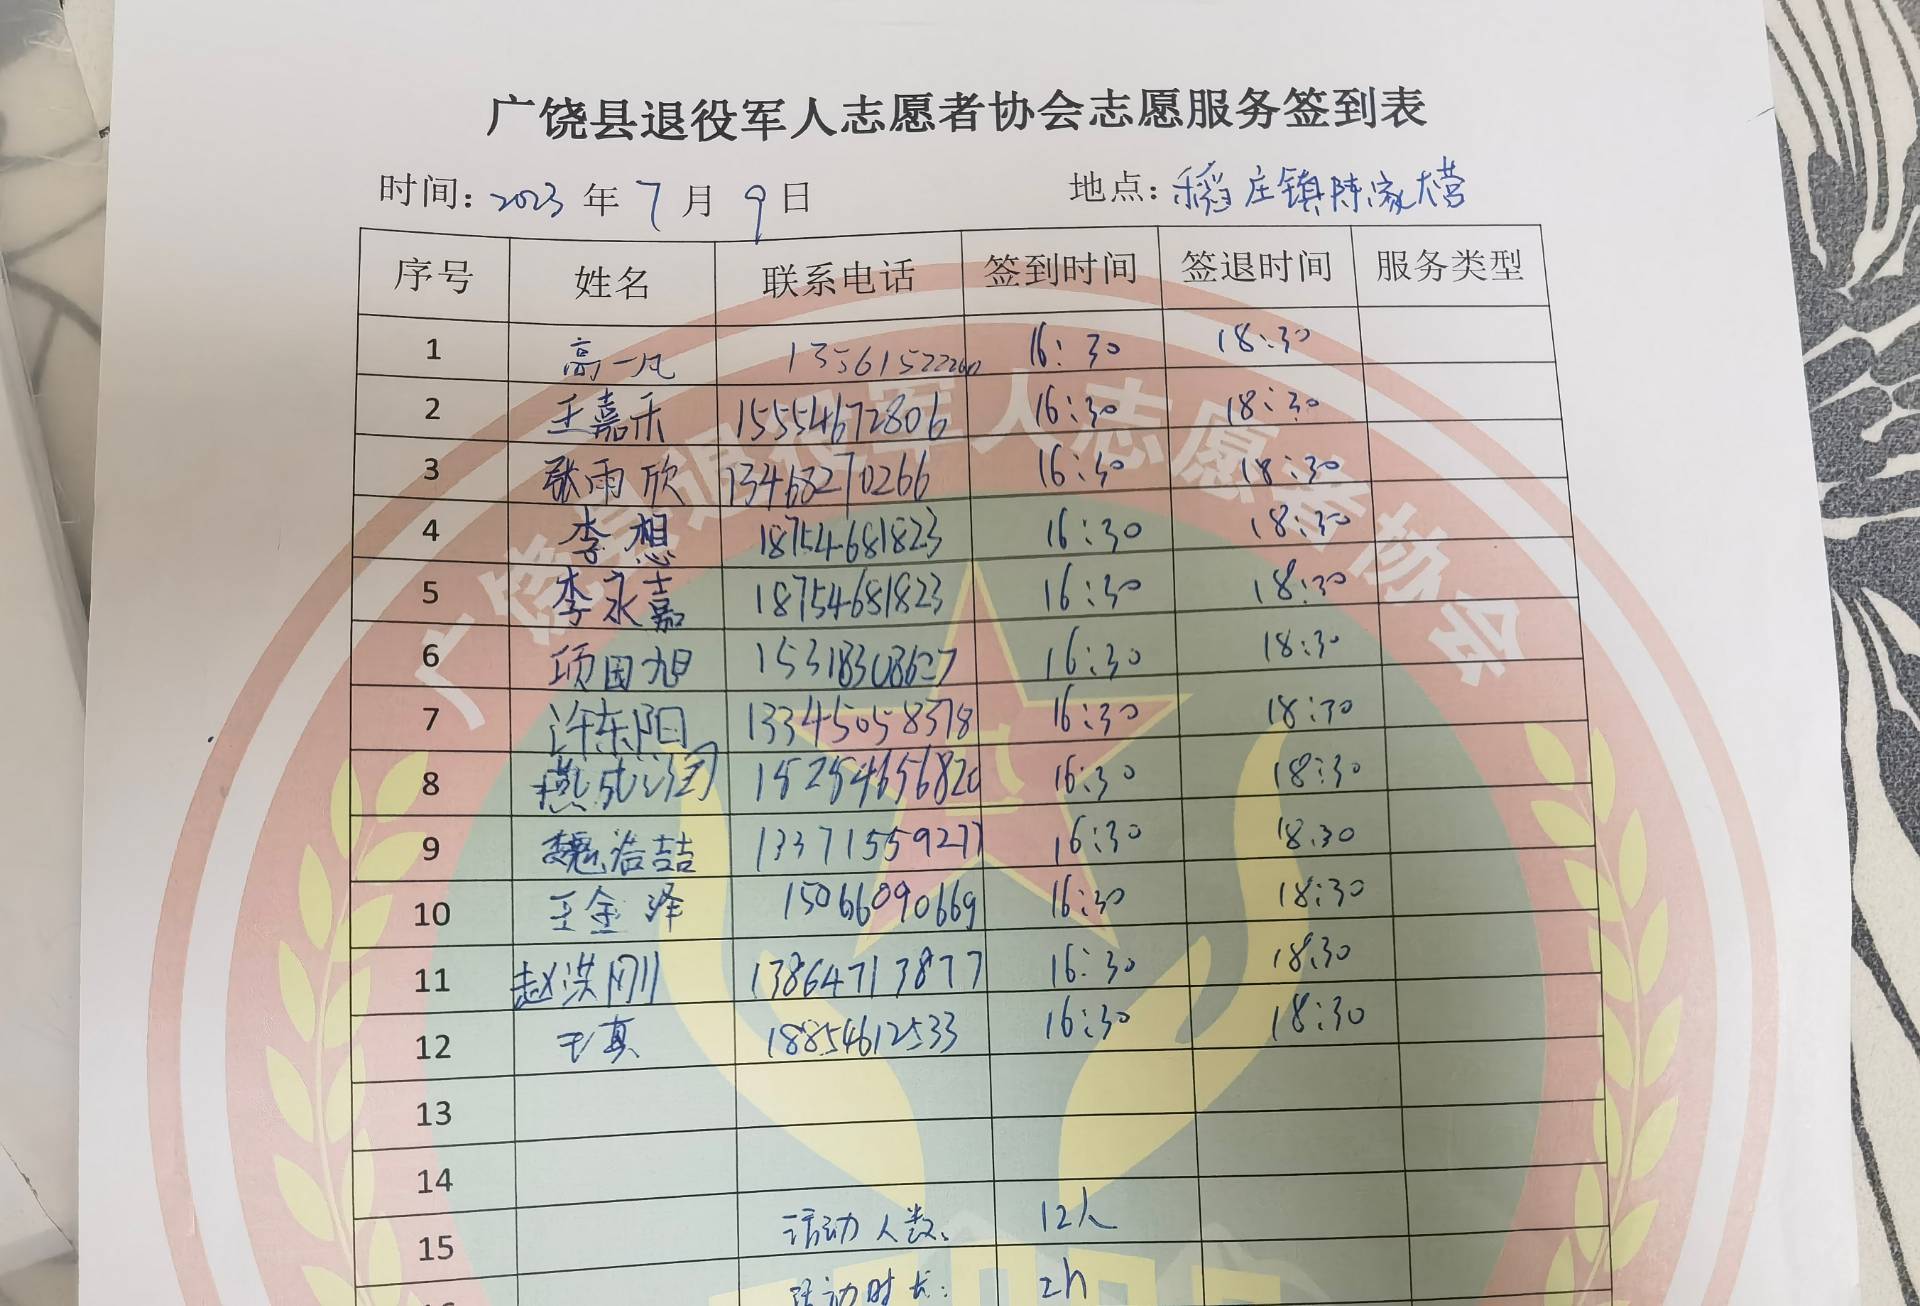 广饶县退役军人志愿者协会志愿服务签到表
时间: 2023 年 7 月 9 日 地点: 稻庄镇陈家大营
序号 姓名 联系电话 签到时间 签退时间 服务类型
1 高一凡 13561522260 16:30 18:30
2 王嘉禾 15554672806 16:30 18:30
3 张雨欣 13468270266 16:30 18:30
4 李想 18754681823 16:30 18:30
5 李永嘉 18754681823 16:30 18:30
6 项国旭 15318308627 16:30 18:30
7 许东阳 13345058378 16:30 18:30
8 燕成润 15254656820 16:30 18:30
9 魏浩喆 13371559277 16:30 18:30
10 王金泽 15066090669 16:30 18:30
11 赵洪刚 13864713877 16:30 18:30
12 王真 18854612533 16:30 18:30
13
14
15 活动人数: 12人
活动时长: 2h
广饶县退役军人志愿者协会